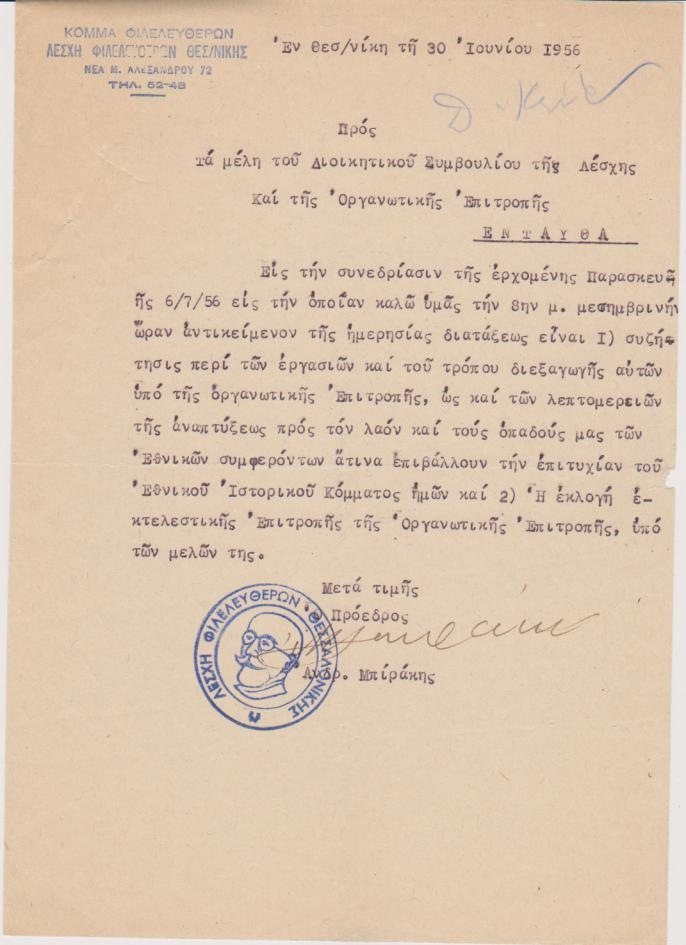 ΚΟΜΜΑ ΦΙΛΕΛΕΥΘΕΡΩΝ
ΛΕΣΧΗ ΦΙΛΕΛΕΥΘΕΡΩΝ ΘΕΣ/ΝΙΚΗΣ
ΝΕΑ Μ. ΑΛΕΞΑΝΔΡΟΥ 72
ΤΗΛ. 52-48
Ἐν Θεσ/νίκη τῆ 30 Ἰουνίου 1956
Πρός
Τά μέλη τοῦ Διοικητικοῦ Συμβουλίου τῆς Λέσχης
Καί τῆς Ὀργανωτικῆς Ἐπιτροπῆς
ΕΝΤΑΥΘΑ
Εἰς τήν συνεδρίασιν τῆς ἐρχομένης Παρασκευῆ
ῆς 6/7/56 εἰς τήν ὁποίαν καλῶ ὑμᾶς τήν 8ην μ. μεσημβρινήν
ὥραν ἀντικείμενον τῆς ἡμερησίας διατάξεως εἶναι Ι) συζή-
τησις περί τῶν ἐργασιῶν καί τοῦ τρόπου διεξαγωγῆς αὐτῶν
ὑπό τῆς ὀργανωτικῆς Ἐπιτροπῆς, ὡς καί τῶν λεπτομερειῶν
τῆς ἀναπτύξεως πρός τόν λαόν καί τούς ὀπαδούς μας τῶν
Ἐθνικῶν συμφερόντων ἅτινα ἐπιβάλλουν τήν ἐπιτυχίαν τοῦ
Ἐθνικοῦ Ἱστορικοῦ Κόμματος ἡμῶν καί 2) Ἡ ἐκλογή ἐ-
κτελεστικῆς Ἐπιτροπῆς τῆς Ὀργανωτικῆς Ἐπιτροπῆς, ὑπό
τῶν μελῶν της.
Μετά τιμῆς
Πρόεδρος
Ἀνδρ. Μπίράκης
ΛΕΣΧΗ ΦΙΛΕΛΕΥΘΕΡΩΝ ΘΕΣΣΑΛΟΝΙΚΗΣ